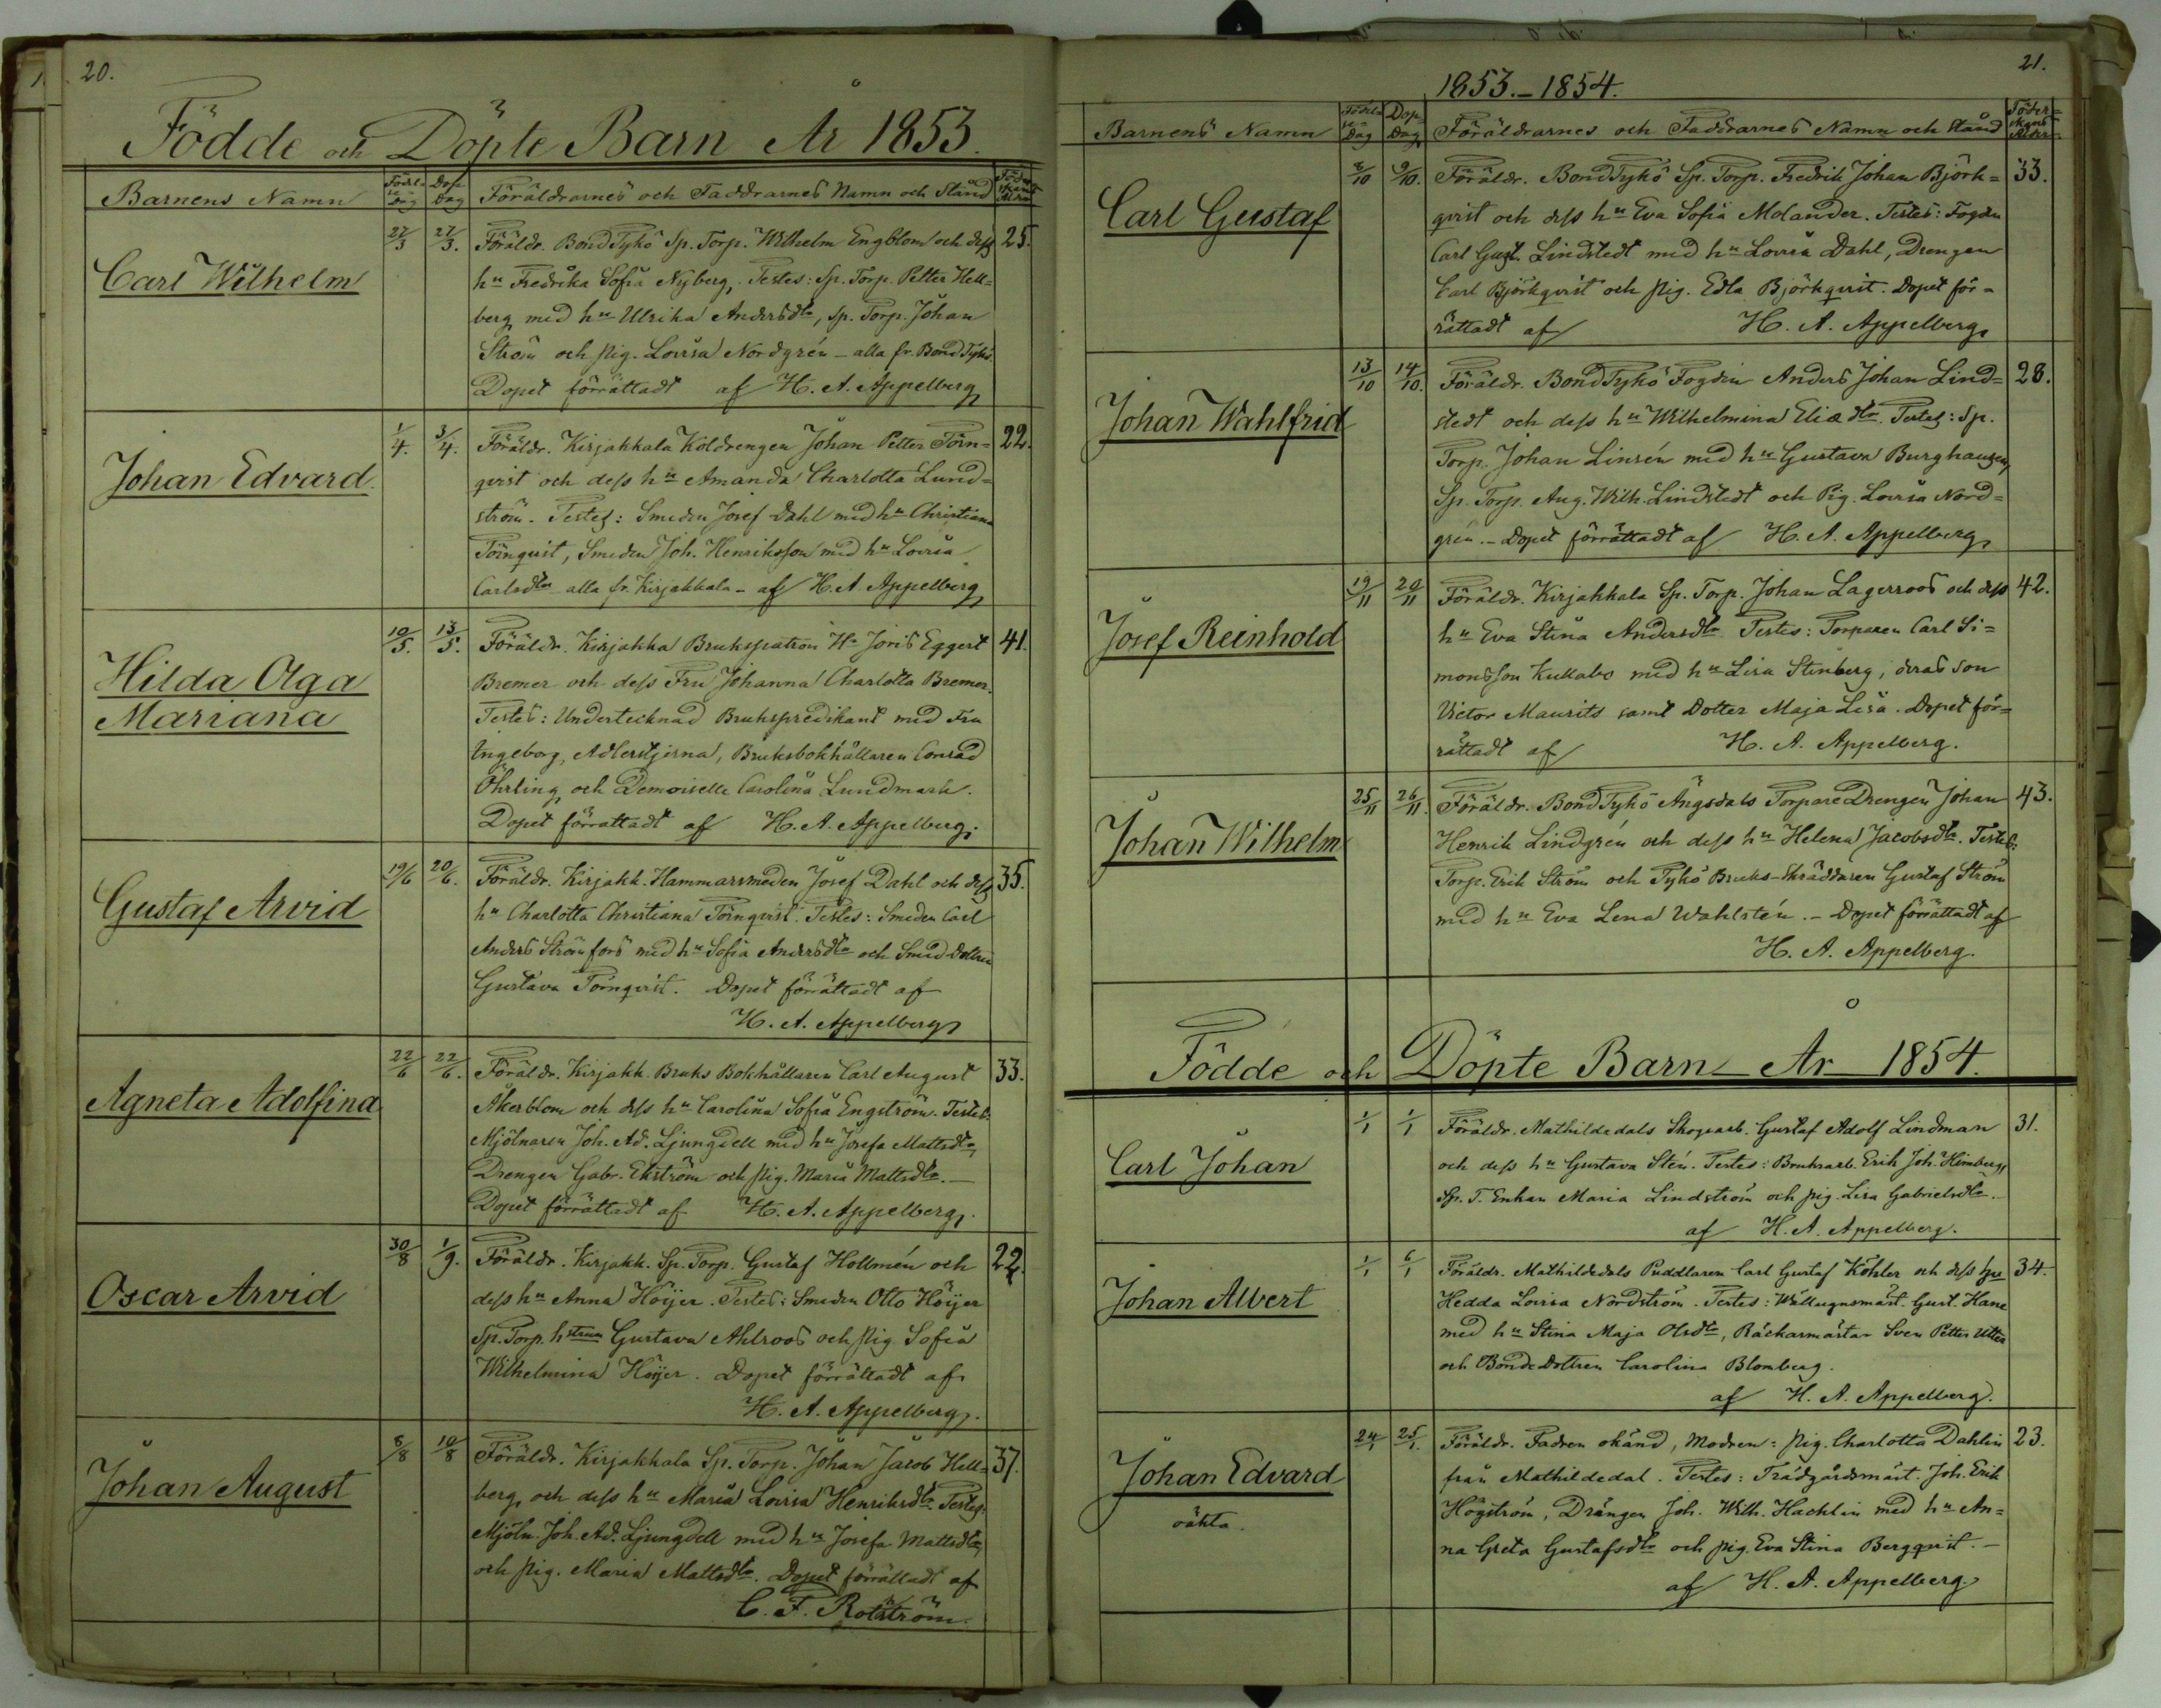 20.
Födde och Döpte Barn År 1853.
Barnens Namn Födelse Dag Dop Dag Föräldrarnes och Faddrarnes Namn och Stånd
Carl Wilhelm 27/3 27/3. Föräldr. BondTykö Sp. Torp. Wilhelm Engblom och dess 25.
hu Fredrika Sofia Nyberg. Testes: Sp. Torp. Petter Hell=
berg med hu Ulrika Andersdtr, Sp. Torp. Johan
Ström och pig. Lovisa Nordgrén – alla fr. BondTykö.
Dopet förrättadt af H. A. Appelberg
Johan Edvard. 1/4. 3/4. Föräldr. Kirjakkala Koldrengen Johan Petter Törn= 22.
qvist och dess hu Amanda Charlotta Lund=
ström. Testes: Smeden Josef Dahl med hu Christiana
Törnqvist, Smeden Joh. Henriksson med hu Lovisa
Carlsdtr alla fr. Kirjakkala – af H. A. Appelberg
Hilda Olga Mariana 10/5. 13/5. Föräldr. Kirjakka Brukspatron Hr Joris Eggert 41.
Bremer och dess Fru Johanna Charlotta Bremer.
Testes: Undertecknad Brukspredikant med Fru
Ingeborg, Adlerstjerna, Bruksbokhållaren Conrad
Öhrling, och Demoiselle Carolina Lundmark.
Dopet förrättadt af H. A. Appelberg.
Gustaf Arvid 19/6 20/6. Föräldr. Kirjakk. Hammarsmeden Josef Dahl och dess 35.
hu Charlotta Christiana Törnqvist. Testes: Smeden Carl
Anders Strömfors med hu Sofia Andersdtr och Smed Dottren
Gustava Törnqvist. Dopet förrättadt af
H. A. Appelberg
Agneta Adolfina 22/6 22/6. Föräldr. Kirjakk. Bruks Bokhållaren Carl August 33.
Åkerblom och dess hu Carolina Sofia Engström. Testes:
Mjölnaren Joh. Ad. Ljungdell med hu Josefa Mattsdtr,
Drengen Gabr. Ekström och pig. Maria Mattsdtr. –
Dopet förrättadt af H. A. Appelberg.
Oscar Arvid 30/8 1/9. Föräldr. Kirjakk. Sp. Torp. Gustaf Hollmén och 22.
dess hu Anna Höijer. Testes: Smeden Otto Höijer
Sp. Torp. hstrun Gustava Ahlroos och pig Sofia
Wilhelmina Höijer. Dopet förrättadt af
H. A. Appelberg.
Johan August 8/8 10/8 Föräldr. Kirjakkala Sp. Torp. Johan Jacob Hell= 37.
berg, och dess hu Maria Lovisa Henriksdtr. Testes:
Mjöln. Joh. Ad. Ljungdell med hu Josefa Mattsdtr,
och pig. Maria Mattsdtr. Dopet förrättadt af
C. F. Rotström.
21.
1853.–1854.
Barnens Namn Födelse Dag Dop. Dag Föräldrarnes och Faddrarnes Namn och Stånd
Carl Gustaf 8/10 9/10. Föräldr. BondTykö Sp. Torp. Fredrik Johan Björk= 33.
qvist och dess hu Eva Sofia Molander. Testes: Fogden
Carl Gust. Lindstedt med hu Lovisa Dahl, Drengen
Carl Björkqvist och pig. Edla Björkqvist. Dopet för=
rättadt af H. A. Appelberg
Johan Wahlfrid 13/10 14/10. Föräldr. BondTykö Fogden Anders Johan Lind= 28.
stedt och dess hu Wilhelmina Eliædtr. Testes: Sp.
Torp. Johan Linsén med hu Gustava Burghausen,
Sp. Torp. Aug. Wilh. Lindstedt och Pig. Lovisa Nord=
grén. – Dopet förrättadt af H. A. Appelberg
Josef Reinhold 19/11 20/11 Föräldr. Kirjakkala Sp. Torp. Johan Lagerroos och dess 42.
hu Eva Stina Andersdtr Testes: Torparen Carl Si=
monsson Kullabo med hu Lisa Stenberg, deras Son
Victor Maurits samt Dotter Maja Lisa. Dopet för=
rättadt af H. A. Appelberg.
Johan Wilhelm 25/11 26/11. Föräldr. BondTykö Ängsdals TorpareDrengen Johan 43.
Henrik Lindgrén och dess hu Helena Jacobsdtr. Testes:
Torp. Erik Ström och Tykö Bruks-Skräddaren Gustaf Ström
med hu Eva Lena Wahlstén. – Dopet förrättadt af
H. A. Appelberg.
Födde och Döpte Barn År 1854.
Carl Johan 1/1 1/1 Föräldr. Mathildedals Skogsarb. Gustaf Adolf Lindman 31.
och dess hu Gustava Stén. Testes: Bruksarb. Erik Joh. Himberg,
Sp. T. Enkan Maria Lindström och pig. Lisa Gabrielsdtr. –
af H. A. Appelberg.
Johan Albert 1/1 6/1 Föräldr. Mathildedals Puddlaren Carl Gustaf Köhler och dess hu 34.
Hedda Lovisa Nordström. Testes: Wällugnsmäst. Gust. Hane
med hu Stina Maja Olsdtr, Räckarmästar Sven Petter Utter
och BondeDottren Carolina Blomberg.
af H. A. Appelberg.
Johan Edvard 24/1 25/1. Föräldr. Fadren okänd, Modren: pig. Charlotta Dahlin 23.
oäkta. från Mathildedal. Testes: Trädgårdsmäst. Joh. Erik
Högström, Drängen Joh. Wilh. Hachlin med hu An=
na Greta Gustafsdtr och pig. Eva Stina Bergqvist. –
af H. A. Appelberg